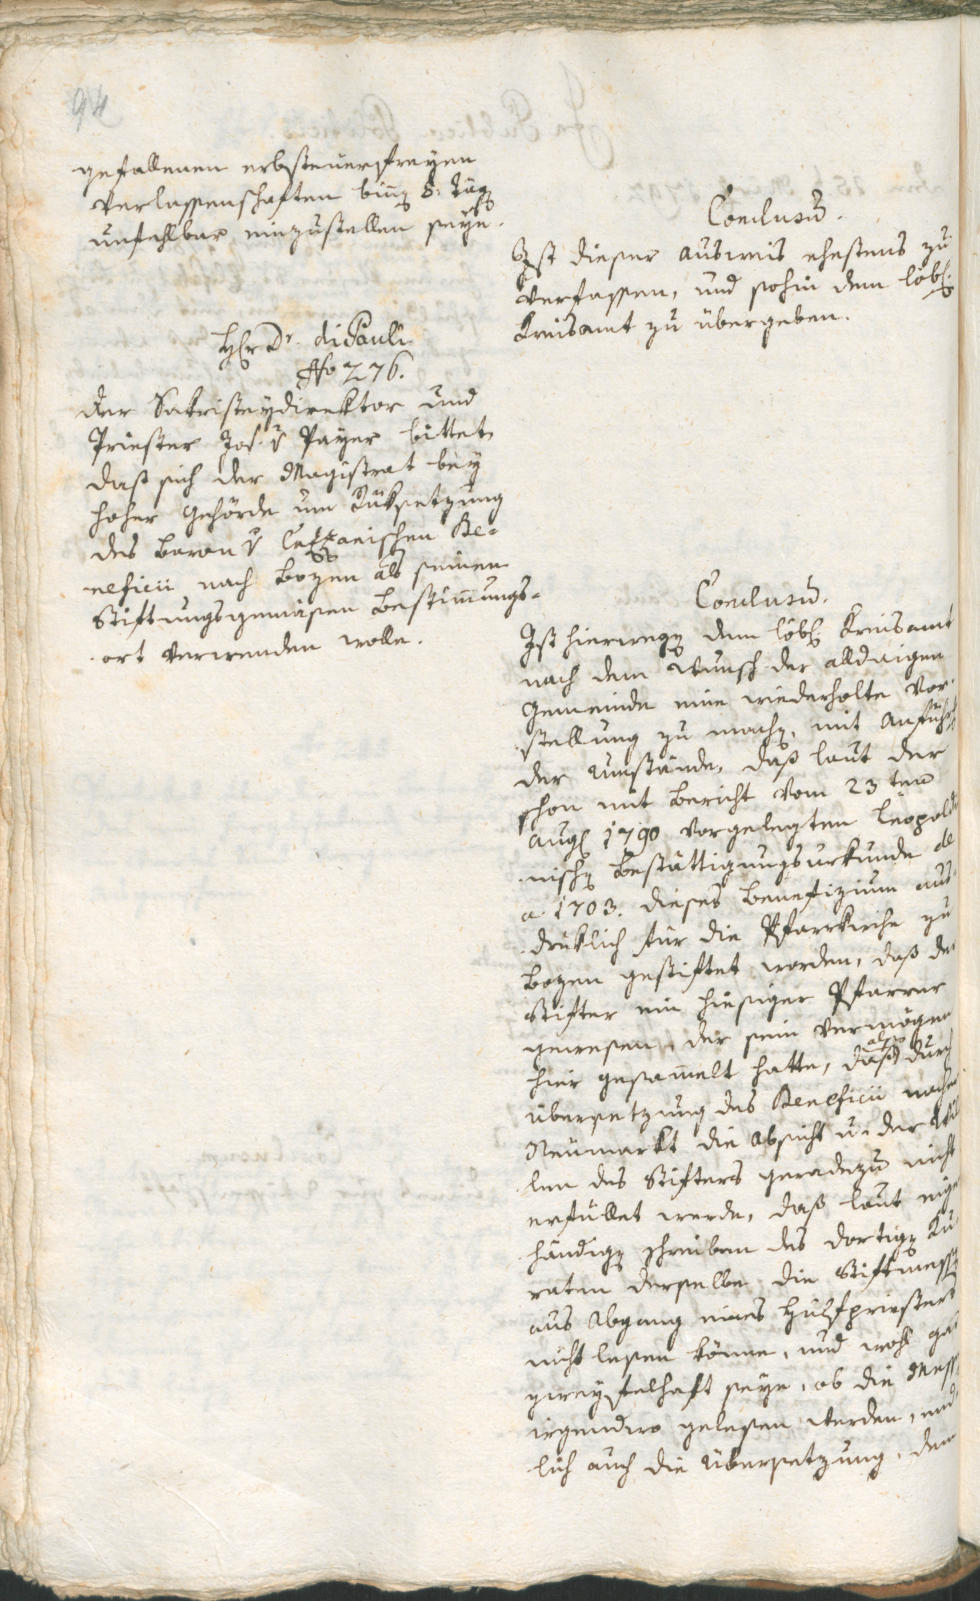 94
gefallenen erbsteuerfreyen
Verlassenschaften binn 8: Täg
unfehlbar einzustellen seye.
Conclusum.
Ist dieser Ausweis ehestens zu
verfassen, und sohin dem löbl.
Kreisamt zu übergeben.
H. Dr. di Pauli
No 276.
Der Sakristeydirektor und
Priester Jos. v Payer bittet,
daß sich der Magistrat bey
hoher Behörde um Rüksetzung
des Baron v Cazzanischen Be-
neficii nach Bozen als seinen
Stiftungsgemäsen Bestimmungs-
ort verwenden wolle.
Conclusum.
Ist hierwegen dem löbl Kreisamt
nach dem Wunsch der alldaigen
Gemeinde eine wiederholte Vor-
stellung zu machen, mit Anführ
der Umstände, daß laut der
schon mit Bericht vom 23 ten
Aug 1790 vorgelegten Leopoldi
nischen Bestättigungsurkunde de
a. 1703. dieses Benefizium aus-
drüklich für die Pfarrkirche zu
Bozen gestiftet worden, daß der
Stifter ein hiesiger Pfarrer
gewesen, der sein Vermögen
hier gesammelt hatte, daß also durch
Übersetzung des Beneficii nacher
Neumarkt die Absicht u. der Wil
len des Stifters geradezu nicht
erfüllet werde, daß laut eigen
händigen Schreiben des dortigen Ku-
raten derselbe die Stiftmessen
aus Abgang eines Hülfpriesters
nicht lesen könne, und wohl gar
zweyfelhaft seye, ob die Messen
irgendwo gelesen werden, end
lich auch die Übersetzung, dem